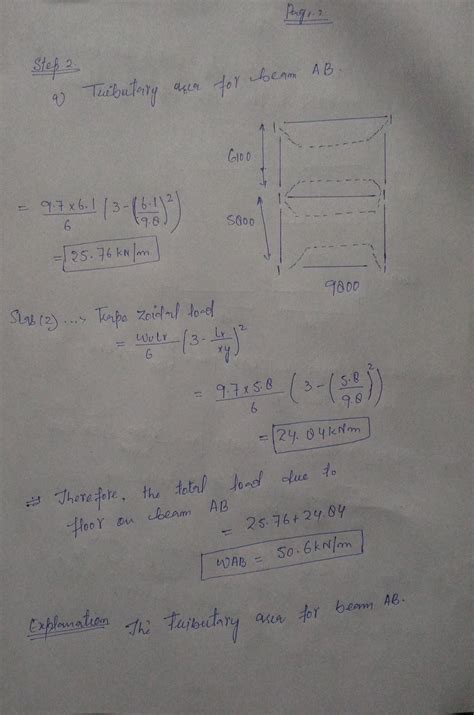 Page: 2
Step 2
a) Tuibutary area for beam AB.
6100
5800
9800
= 9.7 x 6.1 / 6 (3 - (6.1 / 9.8)²)
= 25.76 kN/m
Slab (2) ...> Trape zoidal load
= WuLx / 6 (3 - Lx / xy)²
= 9.7 x 5.8 / 6 (3 - (5.8 / 9.8)²)
= 24.84 kN/m
Therefore, the total load due to
floor on beam AB
= 25.76 + 24.84
WAB = 50.6 kN/m
Explanation The Tuibutary area for beam AB.